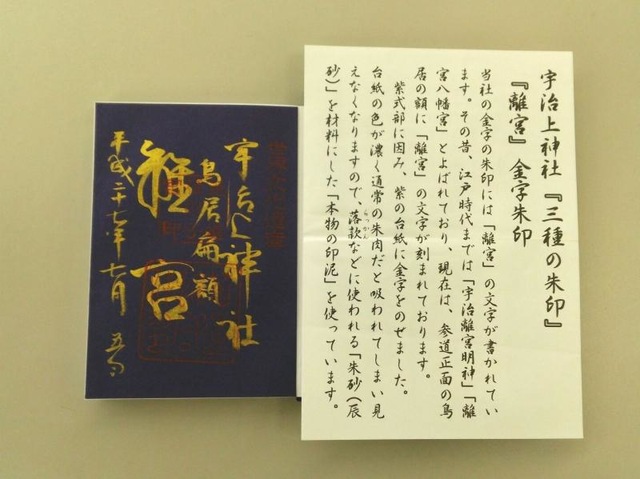 宇治上神社『三種の朱印』
『離宮』金字朱印
当社の金字の朱印には「離宮」の文字が書かれてい
ます。その昔、江戸時代までは「宇治離宮明神」「離
宮八幡宮」とよばれており、現在は、参道正面の鳥
居の額に「離宮」の文字が刻まれております。
紫式部に因み、紫の台紙に金字をのせました。
台紙の色が濃く通常の朱肉だと吸われてしまい見
えなくなりますので、落款などに使われる「朱砂(辰
らっかん
砂)」を材料にした「本物の印泥」を使っています。
宇治上神社
鳥居扁額
離宮
平成二十七年七月五日